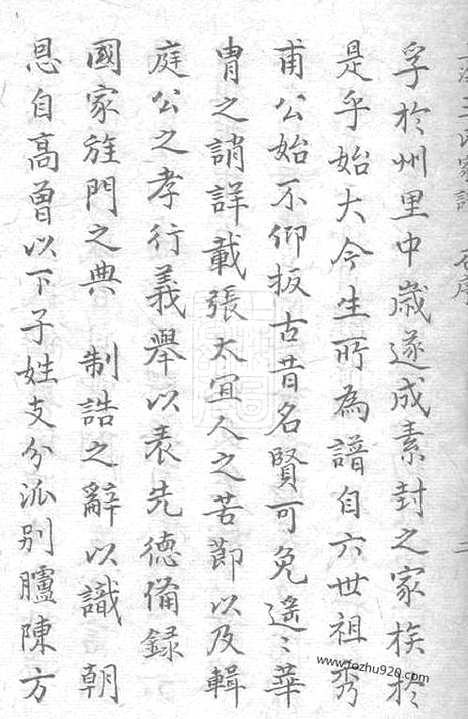 孚於州里中歲遂成素封之家族於
是乎始大今生所為譜自六世祖秀
甫公始不仰扳古昔名賢可免遙〻華
胄之誚詳載張太宜人之苦節以及輯
庭公之孝行義舉以表先德備錄
國家旌門之典 制誥之辭以識 朝
恩自高曾以下子姓支分派別臚陳方
www.fozhu920.com